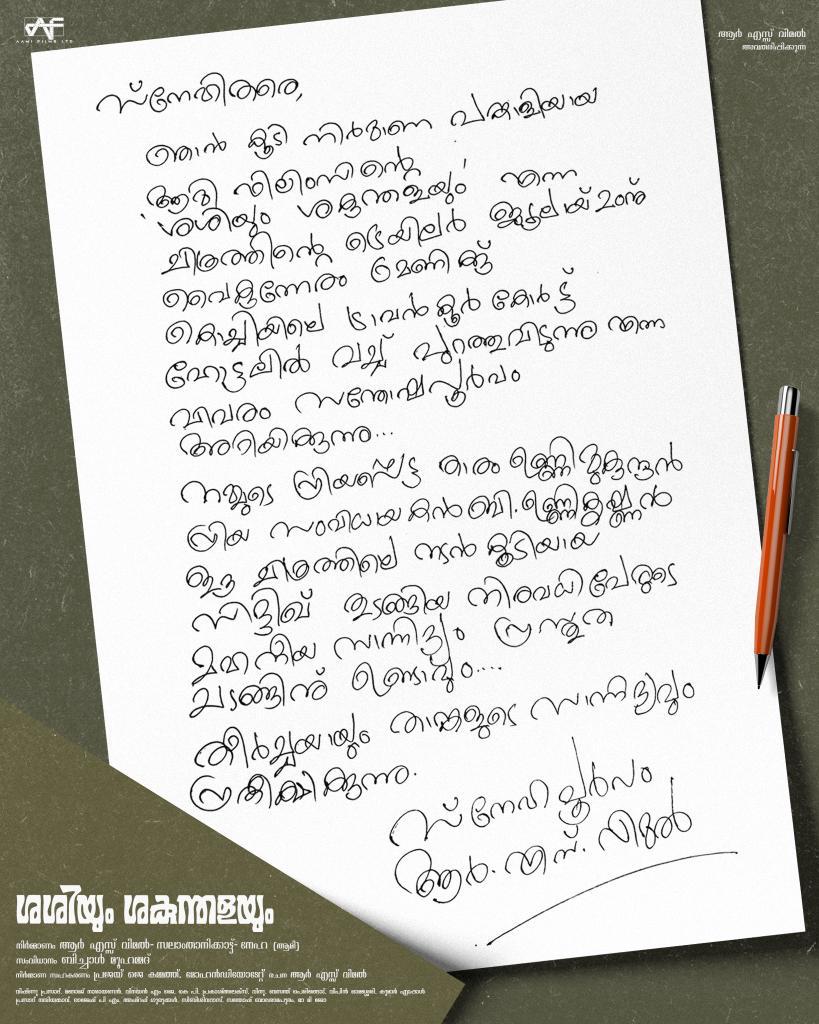 AAMI FILMS LTD
ആർ എസ്സ് വിമൽ
അവതരിപ്പിക്കുന്ന
സ്നേഹിതരെ,
ഞാൻ കൂടി നിർമ്മാണ പങ്കാളിയായ
ആമി ഫിലിംസിന്റെ
'ശശിയും ശകുന്തളയും' എന്ന
ചിത്രത്തിന്റെ ട്രെയിലർ ജൂലായ് 20ന്
വൈകുന്നേരം 6 മണിക്ക്
കൊച്ചിയിലെ ട്രാവൻകൂർ കോർട്ട്
ഹോട്ടലിൽ വച്ച് പുറത്തുവിടുന്നു എന്ന
വിവരം സന്തോഷപൂർവം
അറിയിക്കുന്നു...
നമ്മുടെ പ്രിയപ്പെട്ട താരം ഉണ്ണിമുകുന്ദൻ
പ്രിയ സംവിധായകൻ ബി.ഉണ്ണികൃഷ്ണൻ
ഈ ചിത്രത്തിലെ നടൻ കൂടിയായ
സിദ്ദിഖ് തുടങ്ങിയ നിരവധിപേരുടെ
മഹനീയ സാന്നിദ്ധ്യം പ്രസ്തുത
ചടങ്ങിന് ഉണ്ടാവും....
തീർച്ചയായും താങ്കളുടെ സാന്നിദ്ധ്യവും
പ്രതീക്ഷിക്കുന്നു.
സ്നേഹപൂർവം
ആർ. എസ്. വിമൽ
ശശിയും ശകുന്തളയും
നിർമ്മാണം ആർ എസ്സ് വിമൽ- സലാംതാനിക്കാട്ട്- നേഹ (ആമി)
സംവിധാനം ബിച്ചാൾ മുഹമ്മദ്
നിർമ്മാണ സഹകരണം രചന ആർ എസ്സ് വിമൽ